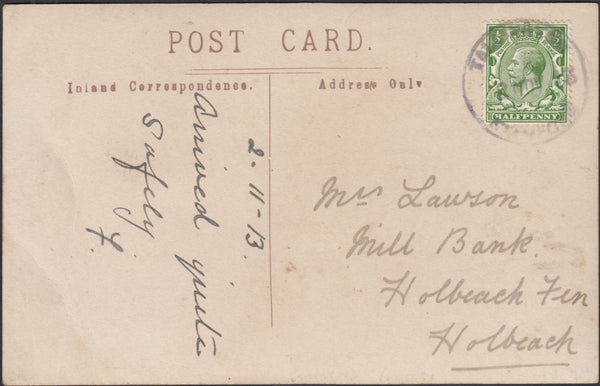 POST CARD.
Inland Correspondence.
Address Only
2-11-13
Arrived quite
safely
F.
HALFPENNY
Mrs Lawson
Mill Bank.
Holbeach Fen
Holbeach